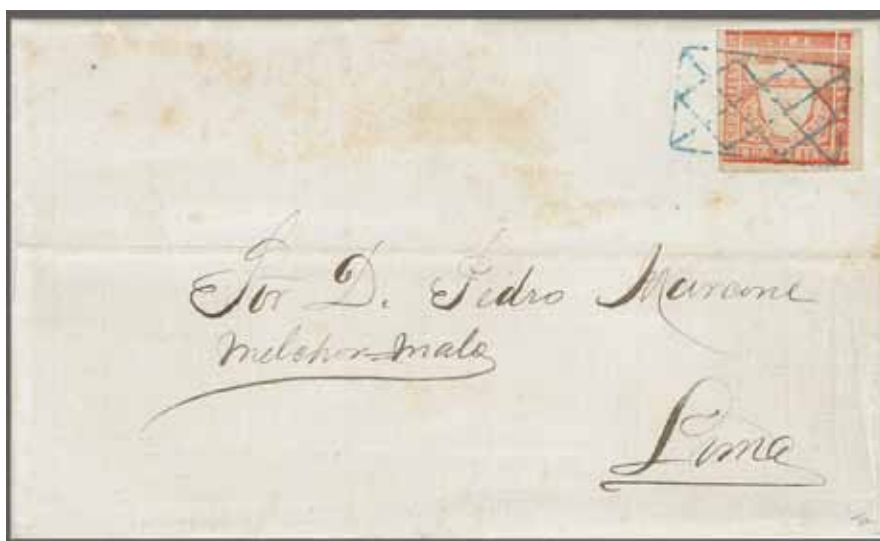 Sor D. Pedro Marcone
Melchor=Malo
Lima